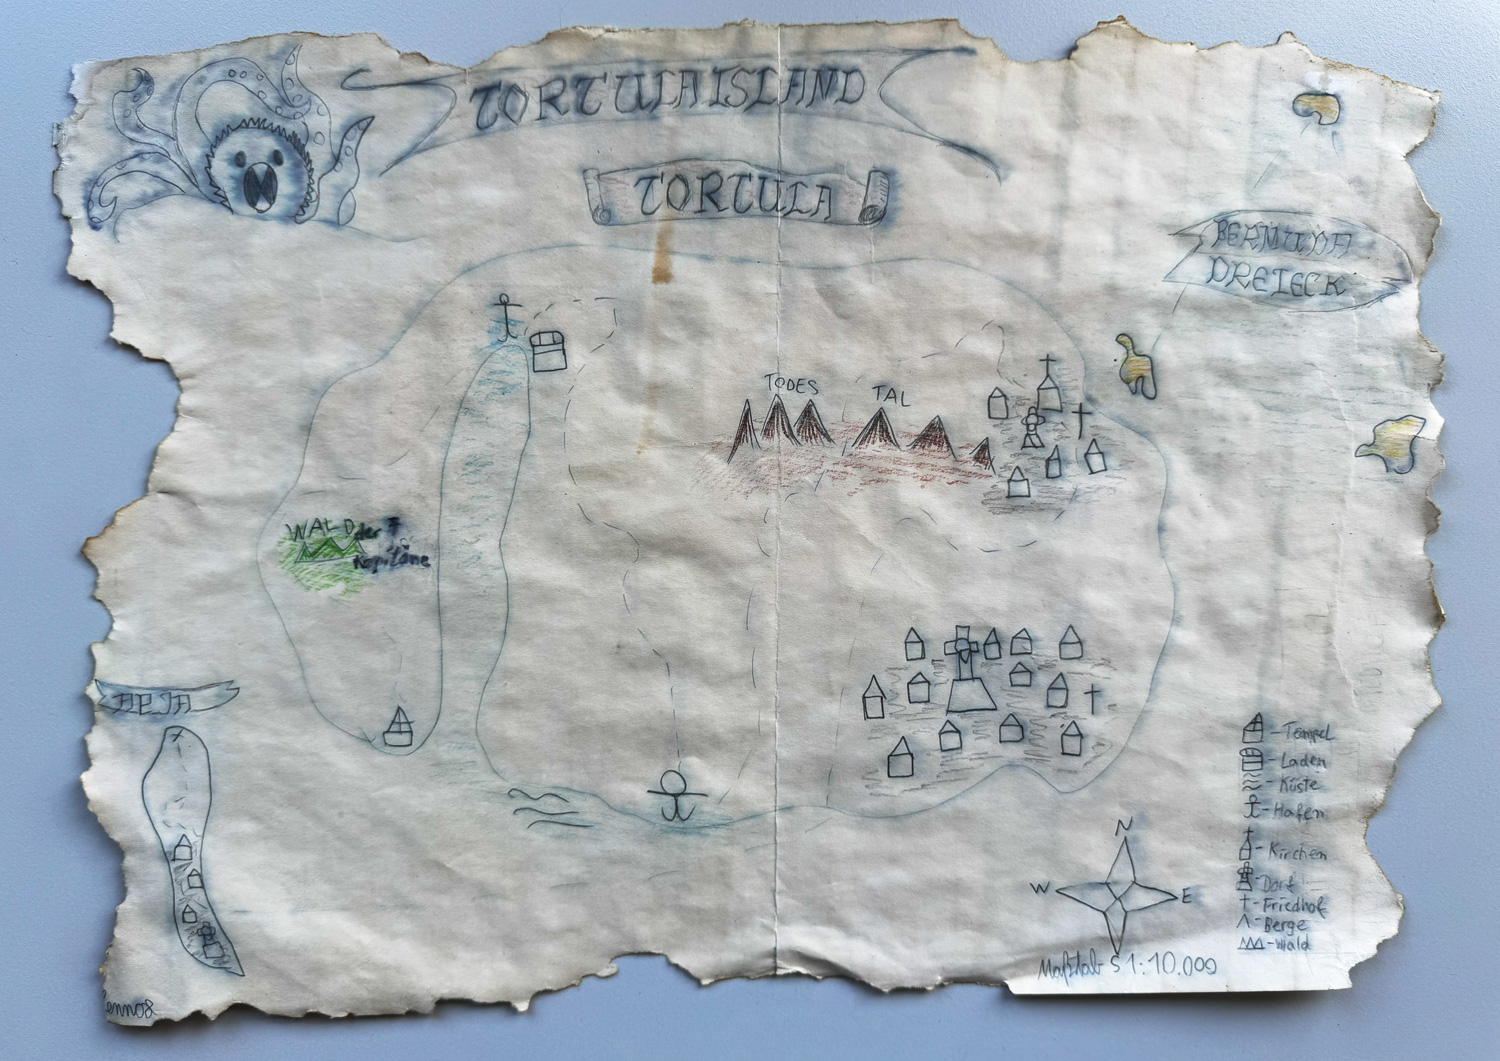 TORTULA ISLAND
TORTULA
BERMUDA
DREIECK
TODES TAL
WALD der
Kapitäne
- Tempel
- Laden
- Küste
- Hafen
- Kirchen
- Dorf
- Friedhof
- Berge
- Wald
N
W E
S
Maßstab 1:10.000